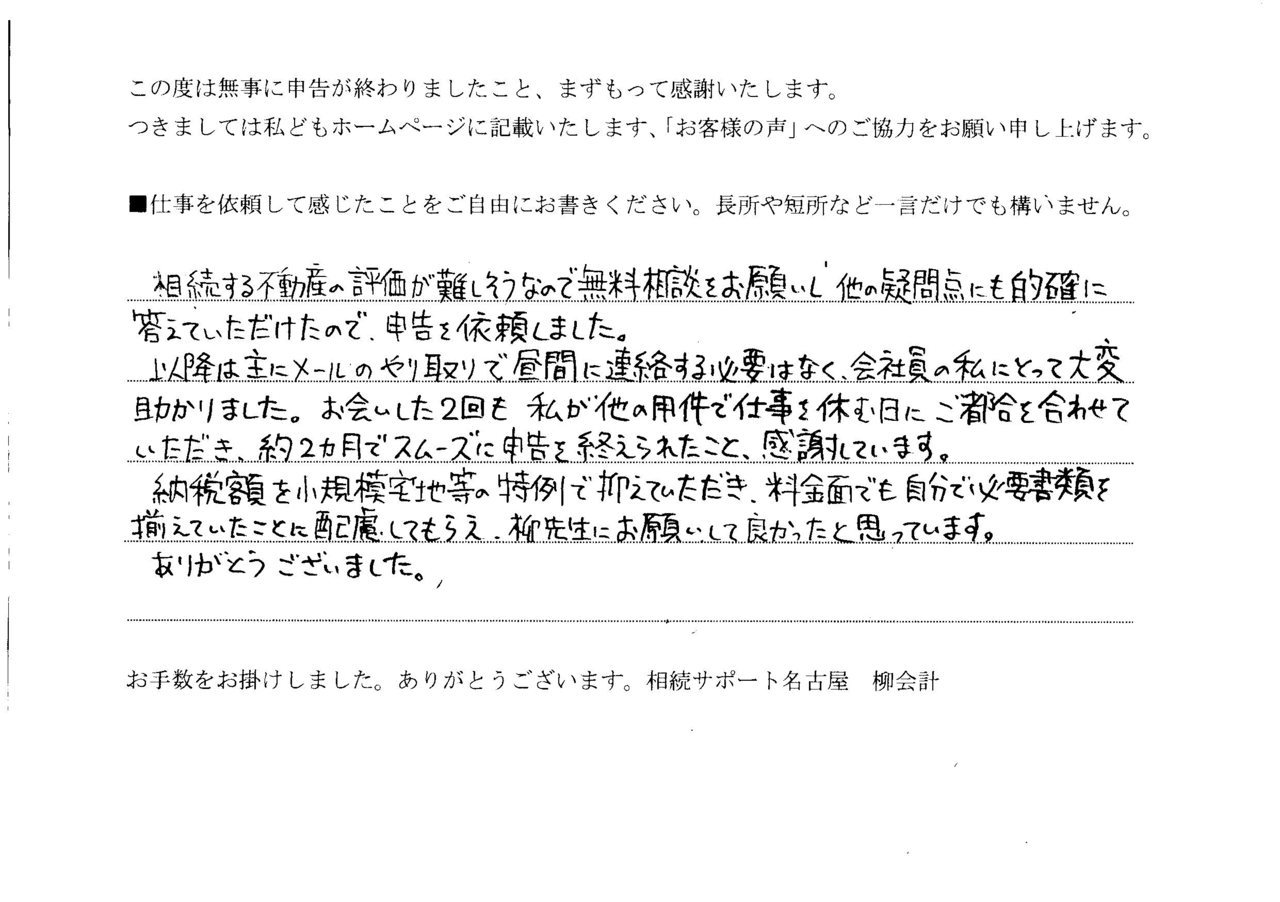 この度は無事に申告が終わりましたこと、まずもって感謝いたします。
つきましては私どもホームページに記載いたします、「お客様の声」へのご協力をお願い申し上げます。
■仕事を依頼して感じたことをご自由にお書きください。長所や短所など一言だけでも構いません。
相続する不動産の評価が難しそうなので無料相談をお願いし 他の疑問点にも的確に
答えていただけたので、申告を依頼しました。
以降は主にメールのやり取りで昼間に連絡する必要はなく、会社員の私にとって大変
助かりました。お会いした2回も 私が他の用件で仕事を休む日に ご都合を合わせて
いただき、約2カ月でスムーズに申告を終えられたこと、感謝しています。
納税額を小規模宅地等の特例で抑えていただき、料金面でも自分で必要書類を
揃えていたことに配慮してもらえ、柳先生にお願いして良かったと思っています。
ありがとうございました。
お手数をお掛けしました。ありがとうございます。相続サポート名古屋 柳会計